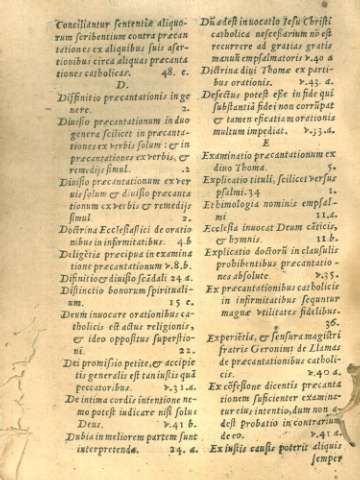 Conciliantur sententiæ aliquo-
rum scribentium contra præcan
tationes ex aliquibus suis aser-
tionibus circa aliquas præcanta
tiones catholicas. 48. e.
D.
Diffinitio præcantationis in ge
nere. 2.
Diuisio præcantationum in duo
genera scilicet in præcanta-
tiones ex verbis solum : & in
præcantationes ex verbis, &
remedijs simul. .2
Diuisio præcantationum ex ver
uis solum & diuisio præcanta
tionum ex verbis & remedijs
simul 2.
Doctrina Ecclesiastici de oratio
nibus in infirmitatibus. 4.b
Deligẽtia præcipua in examina
tione præcantationum v.8.b.
Difinitio & diuisio scãdali 24 a.
Distinctio bonorum spirituali-
um. 15 c.
Deum inuocare orationibus ca-
tholicis est actus religionis,
& ideo oppositus superstio-
ni. 22.
Dei promissio petite, & accipie
tis generalis est tan iustis quã
peccatoribus. v.31.a.
De intima cordis intentione ne-
mo potest iudicare nisi solus
Deus. v.41 b.
Dubia in meliorem partem sunt
interpretenda. 24. a.
Dũ adest inuocatio Iesu Christi
catholica nescessarium nõ est
recurrere ad gratias gratis
manũ empsalmatoris v.40 a
Dictrina diui Thomæ ex parti-
bus orationis. v.43. a.
Defectus potest esse in fide qui
substantiã fidei non corrũpat
& tamen eficatiam orationis
multum impediat. v.33.a.
E
Examinatio præcantationum ex
diuo Thoma. 5.
Explicatio tituli, scilicet versus
psalmi. 34 1.
Ethimologia nominis empsal-
mi 11.a.
Ecclesia inuocat Deum cãticis,
& hymnis. 11.b.
Explicatio doctorũ in clausulis
prohibentibus præcantatio-
nes absolute. v.35.
Ex præcantationibus catholicis
in infirmitatibus sequntur
magnæ vtilitates fidelibus.
36.
Experiẽtia, & sensura magistri
fratris Geronimi de Llamas
de præcantationibus catholi-
cis. v.40 a.
Ex cõfesione dicentis præcanta
tionem suficienter examina-
tur eius intentio, dum non a-
dest probatio in contrarium
de eo. v.41 a.
Ex iustis causis poterit aliquis
semper